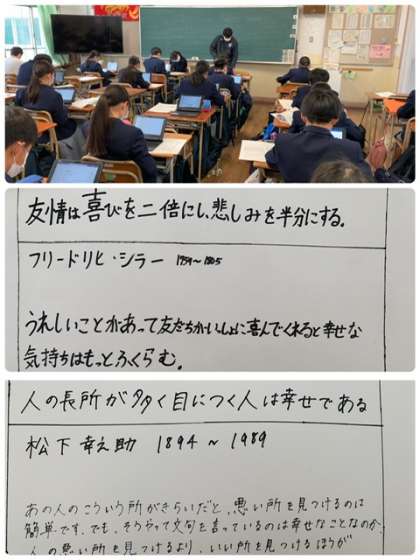 友情は喜びを二倍にし、悲しみを半分にする。
フリードリヒ・シラー 1759〜1805
うれしいことがあって友だちがいっしょに喜んでくれると幸せな
気持ちはもっとふくらむ。
人の長所が多く目につく人は幸せである
松下幸之助 1894 ~ 1989
あの人のこういう所がきらいだと、悪い所を見つけるのは
簡単です。でも、そうやって文句を言っているのは幸せなことなのか。
人の悪い所を見つけるより、いい所を見つけるほうが